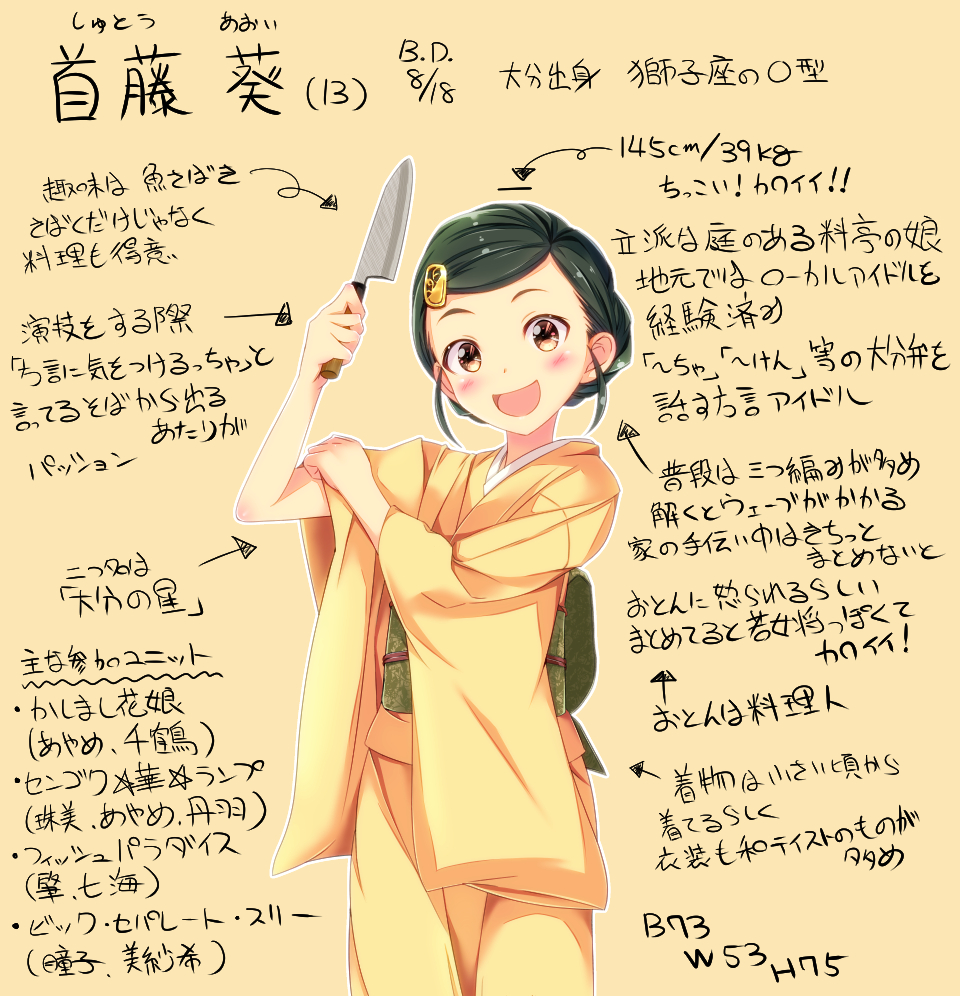 しゅとう あおい
首藤 葵 (13)
B.D.
8/18
大分出身 獅子座のO型
145cm/39kg
ちっこい!カワイイ!!
趣味は 魚さばき
さばくだけじゃなく
料理も得意
演技をする際
「方言に気をつけるっちゃ」と
言ってるそばから出る
あたりが
パッション
二つ名は
「大分の星」
主な参加ユニット
・かしまし花娘
(あやめ、千鶴)
・センゴク☆華☆ランブ
(珠美、あやめ、丹羽)
・フィッシュパラダイス
(肇、七海)
・ビック・セパレート・スリー
(瞳子、美紗希)
立派な庭のある料亭の娘
地元ではローカルアイドルを
経験済み
「~ちゃ」「~けん」等の大分弁を
話す方言アイドル
普段は三つ編みが多め
解くとウェーブがかかる
家の手伝い中はきちっと
まとめないと
おとんに怒られるらしい
まとめてると若女将っぽくて
カワイイ!
おとんは料理人
着物は小さい頃から
着てるらしく
衣装も和テイストのものが
多め
B73
W53
H75